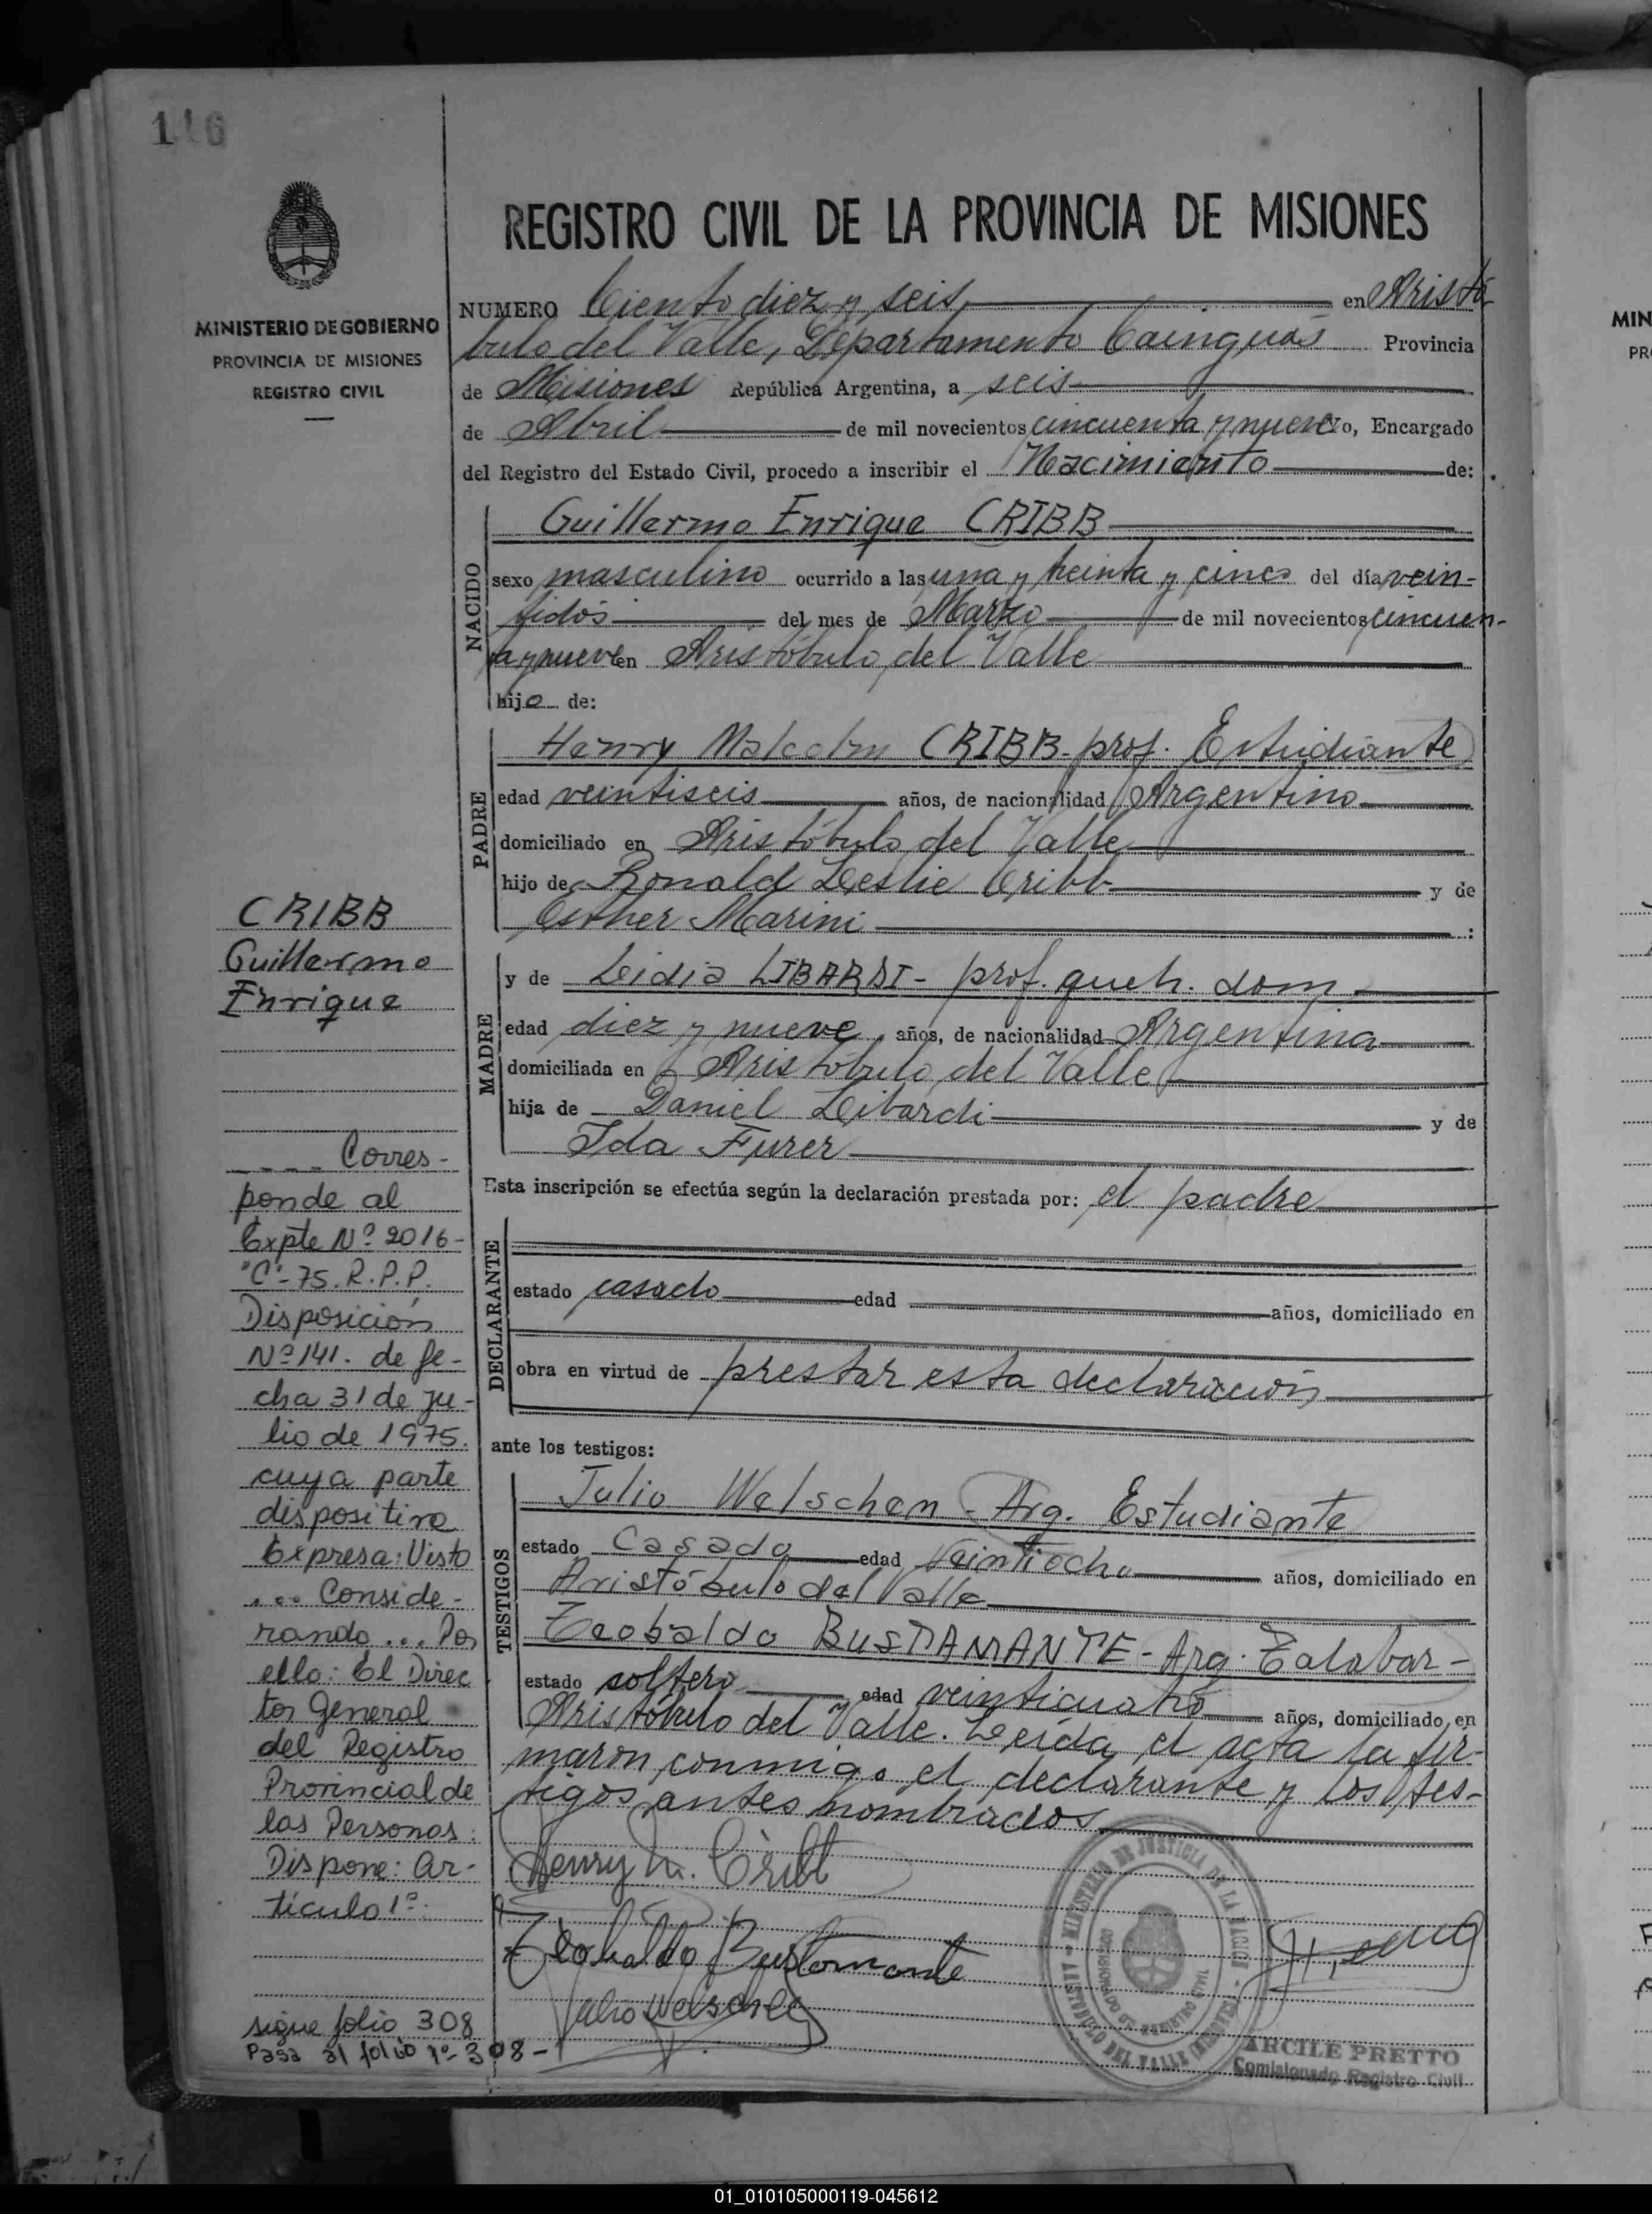 116
MINISTERIO DE GOBIERNO
PROVINCIA DE MISIONES
REGISTRO CIVIL
REGISTRO CIVIL DE LA PROVINCIA DE MISIONES
NUMERO Ciento diez y seis en Aristó
bulo del Valle, Departamento Cainguás Provincia
de Misiones República Argentina, a seis
de Abril de mil novecientos cincuenta y nueve yo, Encargado
del Registro del Estado Civil, procedo a inscribir el Nacimiento de:
NACIDO
Guillermo Enrique CRIBB
sexo masculino ocurrido a las una y treinta y cinco del día vein-
tidós del mes de Marzo de mil novecientos cincuen-
ta y nueve en Aristóbulo del Valle
hijo de:
PADRE
Henry Malcolm CRIBB - prof. Estudiante
edad veintiseis años, de nacionalidad Argentino
domiciliado en Aristóbulo del Valle
hijo de Ronald Leslie Cribb y de
Esther Marini :
MADRE
y de Lidia LIBARDI - prof. queh. dom.
edad diez y nueve años, de nacionalidad Argentina
domiciliada en Aristóbulo del Valle
hija de Daniel Libardi y de
Ida Furer
Esta inscripción se efectúa según la declaración prestada por: el padre
DECLARANTE
estado casado edad años, domiciliado en
obra en virtud de prestar esta declaración
ante los testigos:
TESTIGOS
Julio Welschen - Arg. Estudiante
estado Casado edad Veintiocho años, domiciliado en
Aristóbulo del Valle
Teobaldo BUSTAMANTE - Arg.
estado soltero edad veinticuatro años, domiciliado en
Aristóbulo del Valle. Leída el acta la fir-
maron conmigo el declarante y los tes-
tigos antes nombrados
Henry M. Cribb
Teobaldo Bustamante
Julio Welschen
MINISTERIO DE JUSTICIA DE LA NACION
ARISTOBULO DEL VALLE (MISIONES)
ARCILE PRETTO
Comisionado Registro Civil
CRIBB
Guillermo
Enrique
---- Corres-
ponde al
Expte Nº 2016-
"C"-75. R.P.P.
Disposición
Nº 141. de fe-
cha 31 de ju-
lio de 1975.
cuya parte
dispositiva
Expresa: Visto
... Conside-
rando... Por
ello: El Direc
tor General
del Registro
Provincial de
las Personas:
Dispone: Ar-
tículo 1º:
sigue folio 308
Pasa al folio nº 308-
MIN
PR
01_010105000119-045612